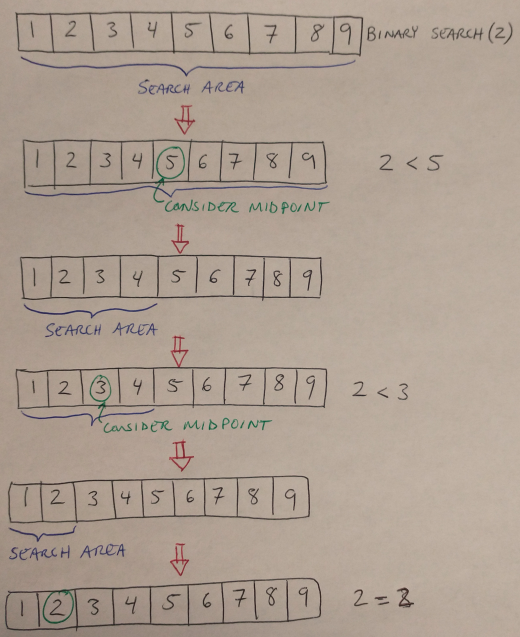 1 2 3 4 5 6 7 8 9 BINARY SEARCH (2)
SEARCH AREA
1 2 3 4 5 6 7 8 9 2 < 5
CONSIDER MIDPOINT
1 2 3 4 5 6 7 8 9
SEARCH AREA
1 2 3 4 5 6 7 8 9 2 < 3
CONSIDER MIDPOINT
1 2 3 4 5 6 7 8 9
SEARCH AREA
1 2 3 4 5 6 7 8 9 2 = 2